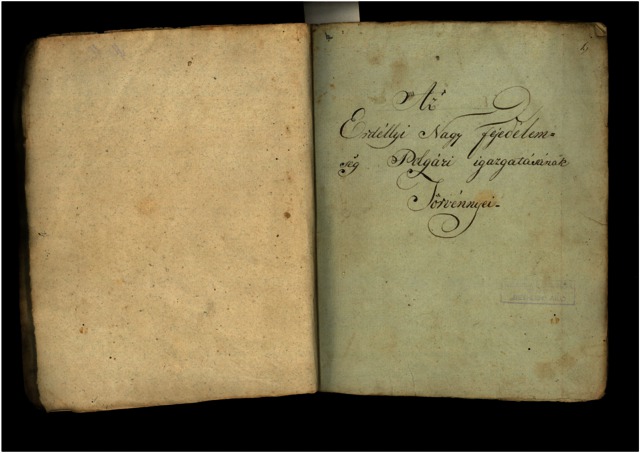 Az
Erdéllyi Nagy fejedelem=
ség Polgári igazgatásának
Törvénnyei.